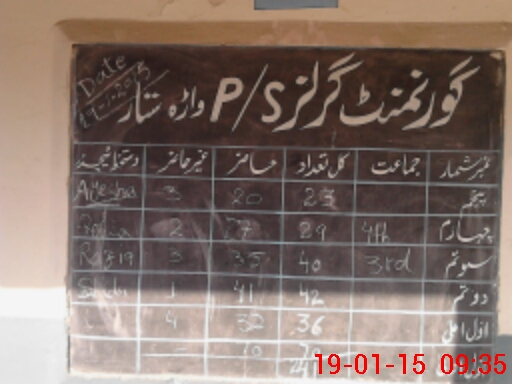 Date
گورنمنٹ گرلز P/S واڑہ ستار
نمبر شمار جماعت کل تعداد حاضر غیر حاضر دستخط ٹیچر
پنجم 23 20 3 Ayesha
چہارم 4th 29 27 2
سوئم 3rd 40 35 Razia
دوئم 42 41 1
اول اعلیٰ 36 32 4
19-01-15 09:35